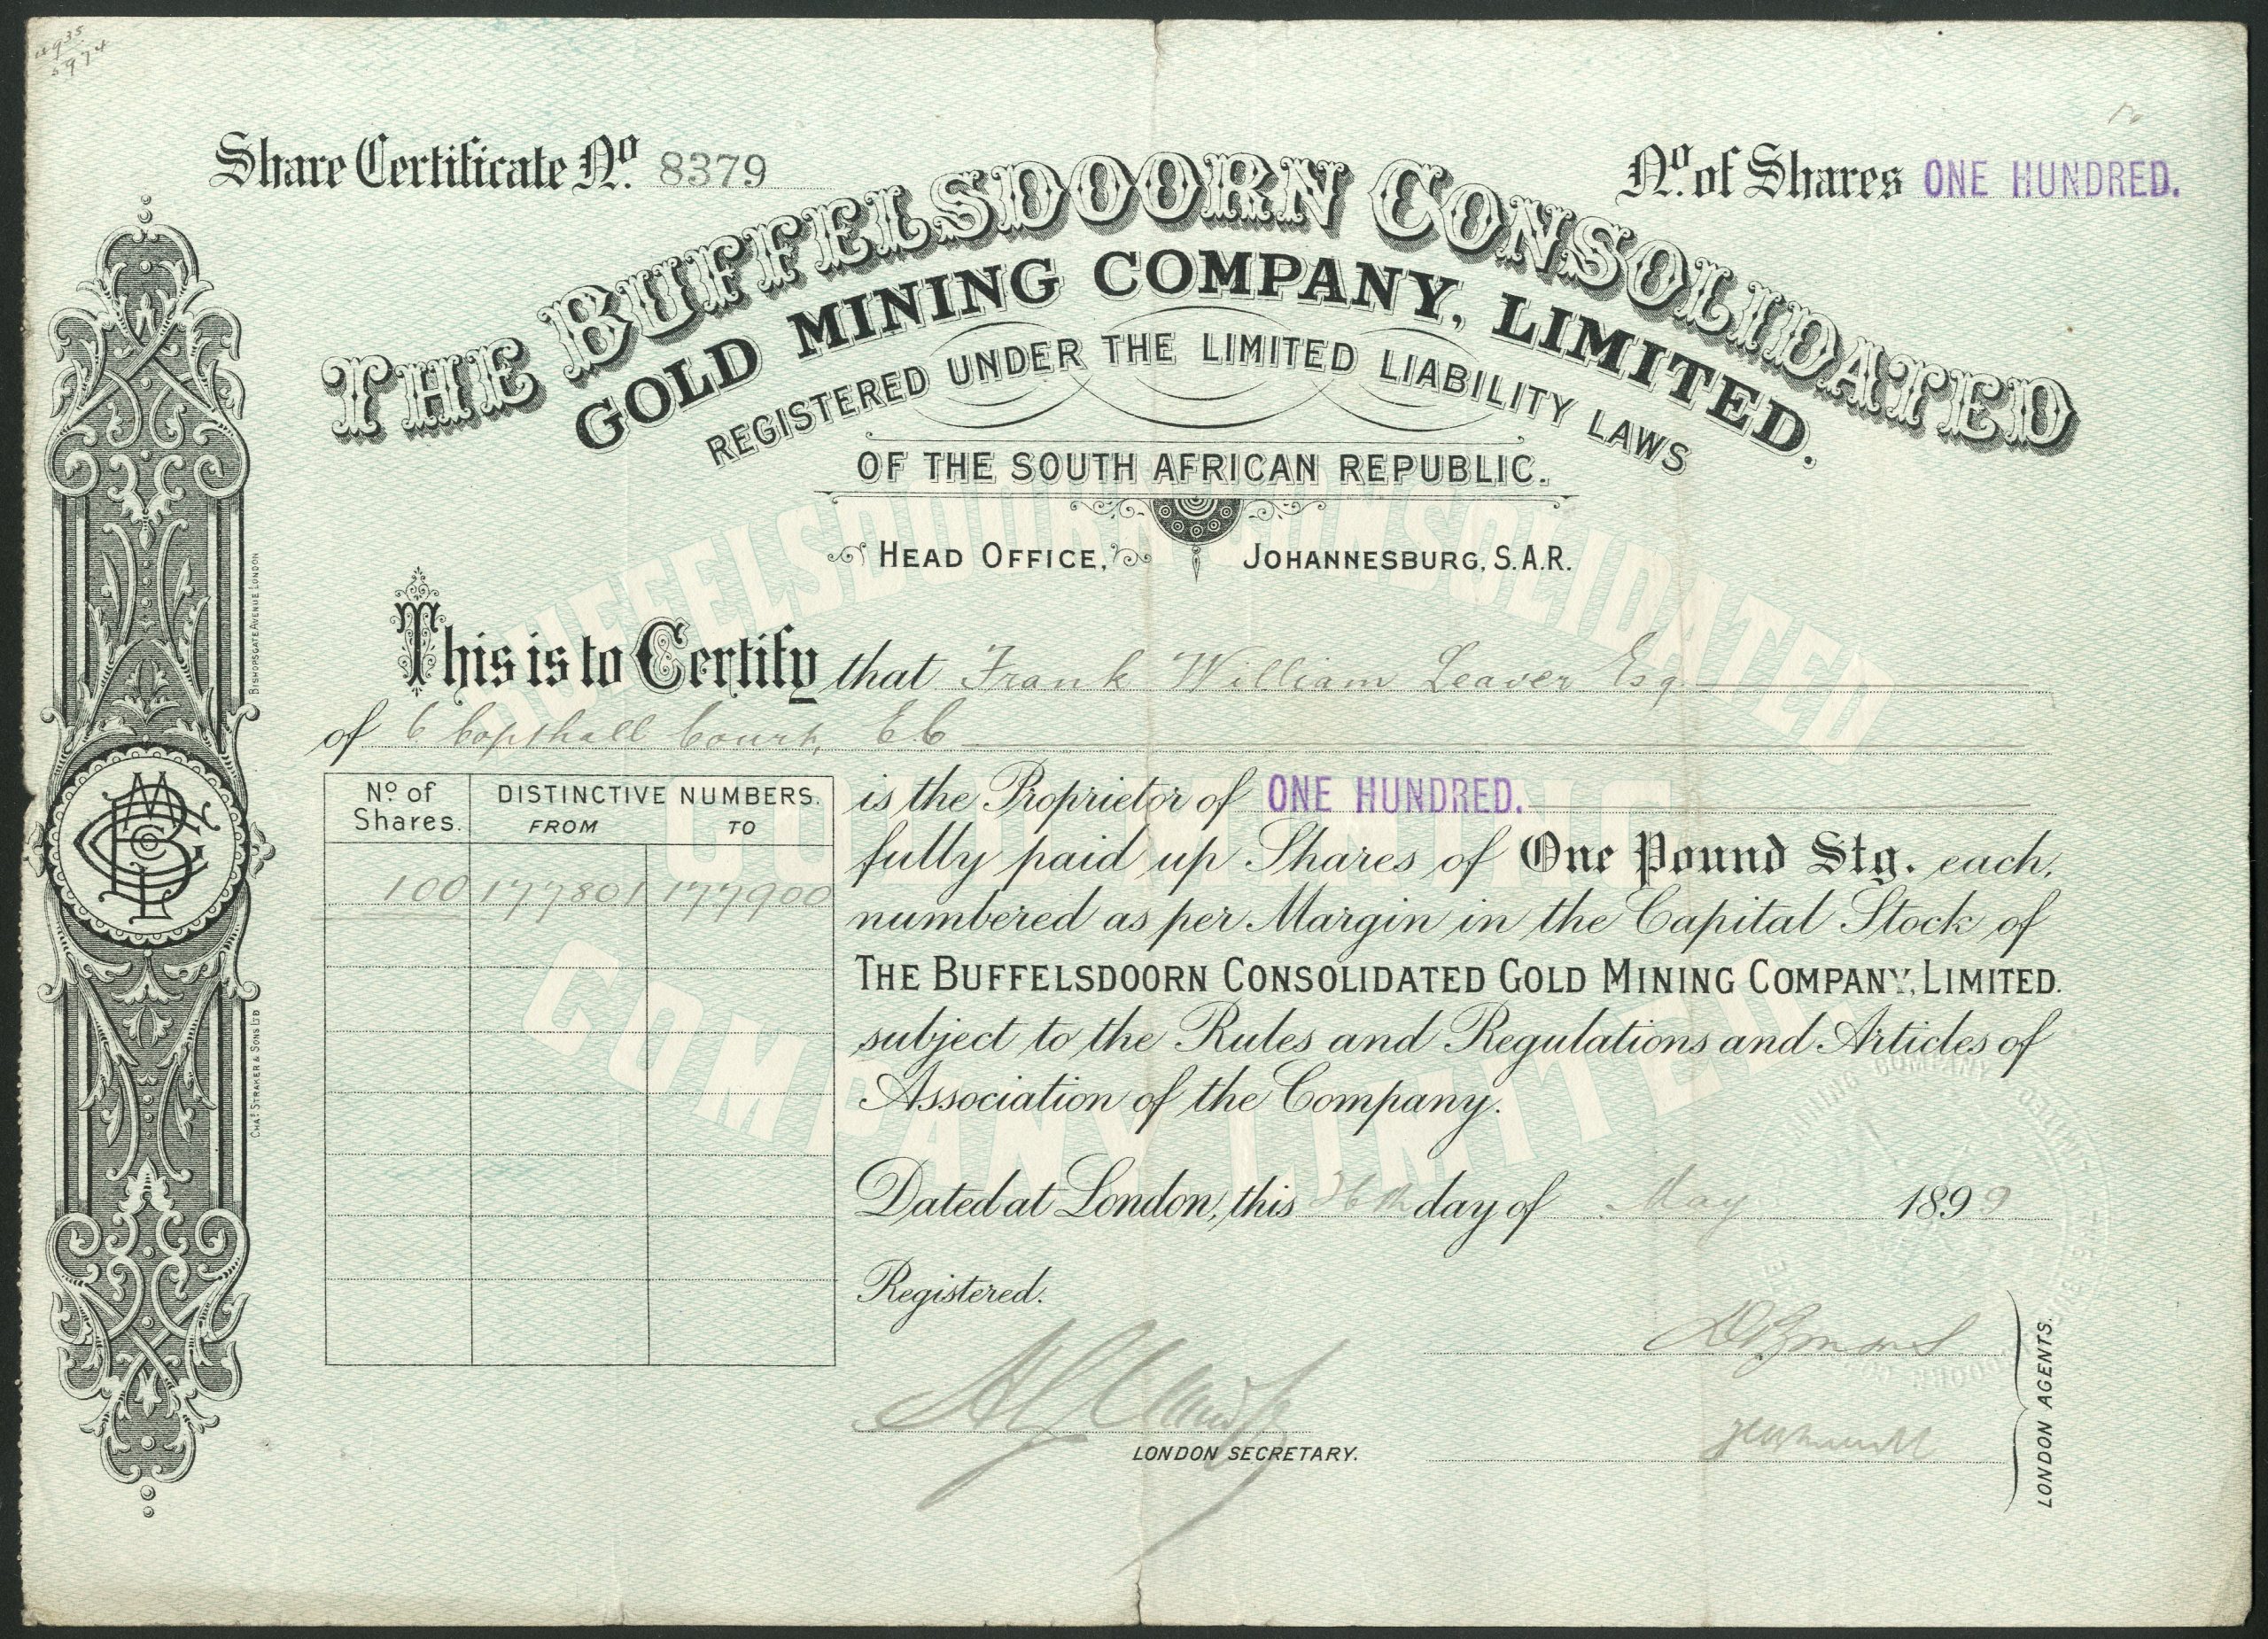 Share Certificate No. 8379
No. of Shares ONE HUNDRED.
THE BUFFELSDOORN CONSOLIDATED
GOLD MINING COMPANY, LIMITED.
REGISTERED UNDER THE LIMITED LIABILITY LAWS
OF THE SOUTH AFRICAN REPUBLIC.
HEAD OFFICE, JOHANNESBURG, S.A.R.
This is to Certify that Frank William Leaver Esq.
of 6 Copthall Court, E C
No. of Shares. DISTINCTIVE NUMBERS. FROM TO
100 177801 177900
is the Proprietor of ONE HUNDRED.
fully paid up Shares of One Pound Stg. each,
numbered as per Margin in the Capital Stock of
THE BUFFELSDOORN CONSOLIDATED GOLD MINING COMPANY, LIMITED.
subject to the Rules and Regulations and Articles of
Association of the Company.
Dated at London, this 26th day of May 1899
Registered.
LONDON SECRETARY.
LONDON AGENTS.
BISHOPSGATE AVENUE LONDON
CHAS. STRAKER & SONS LTD
BUFFELSDOORN CONSOLIDATED
GOLD MINING
COMPANY LIMITED